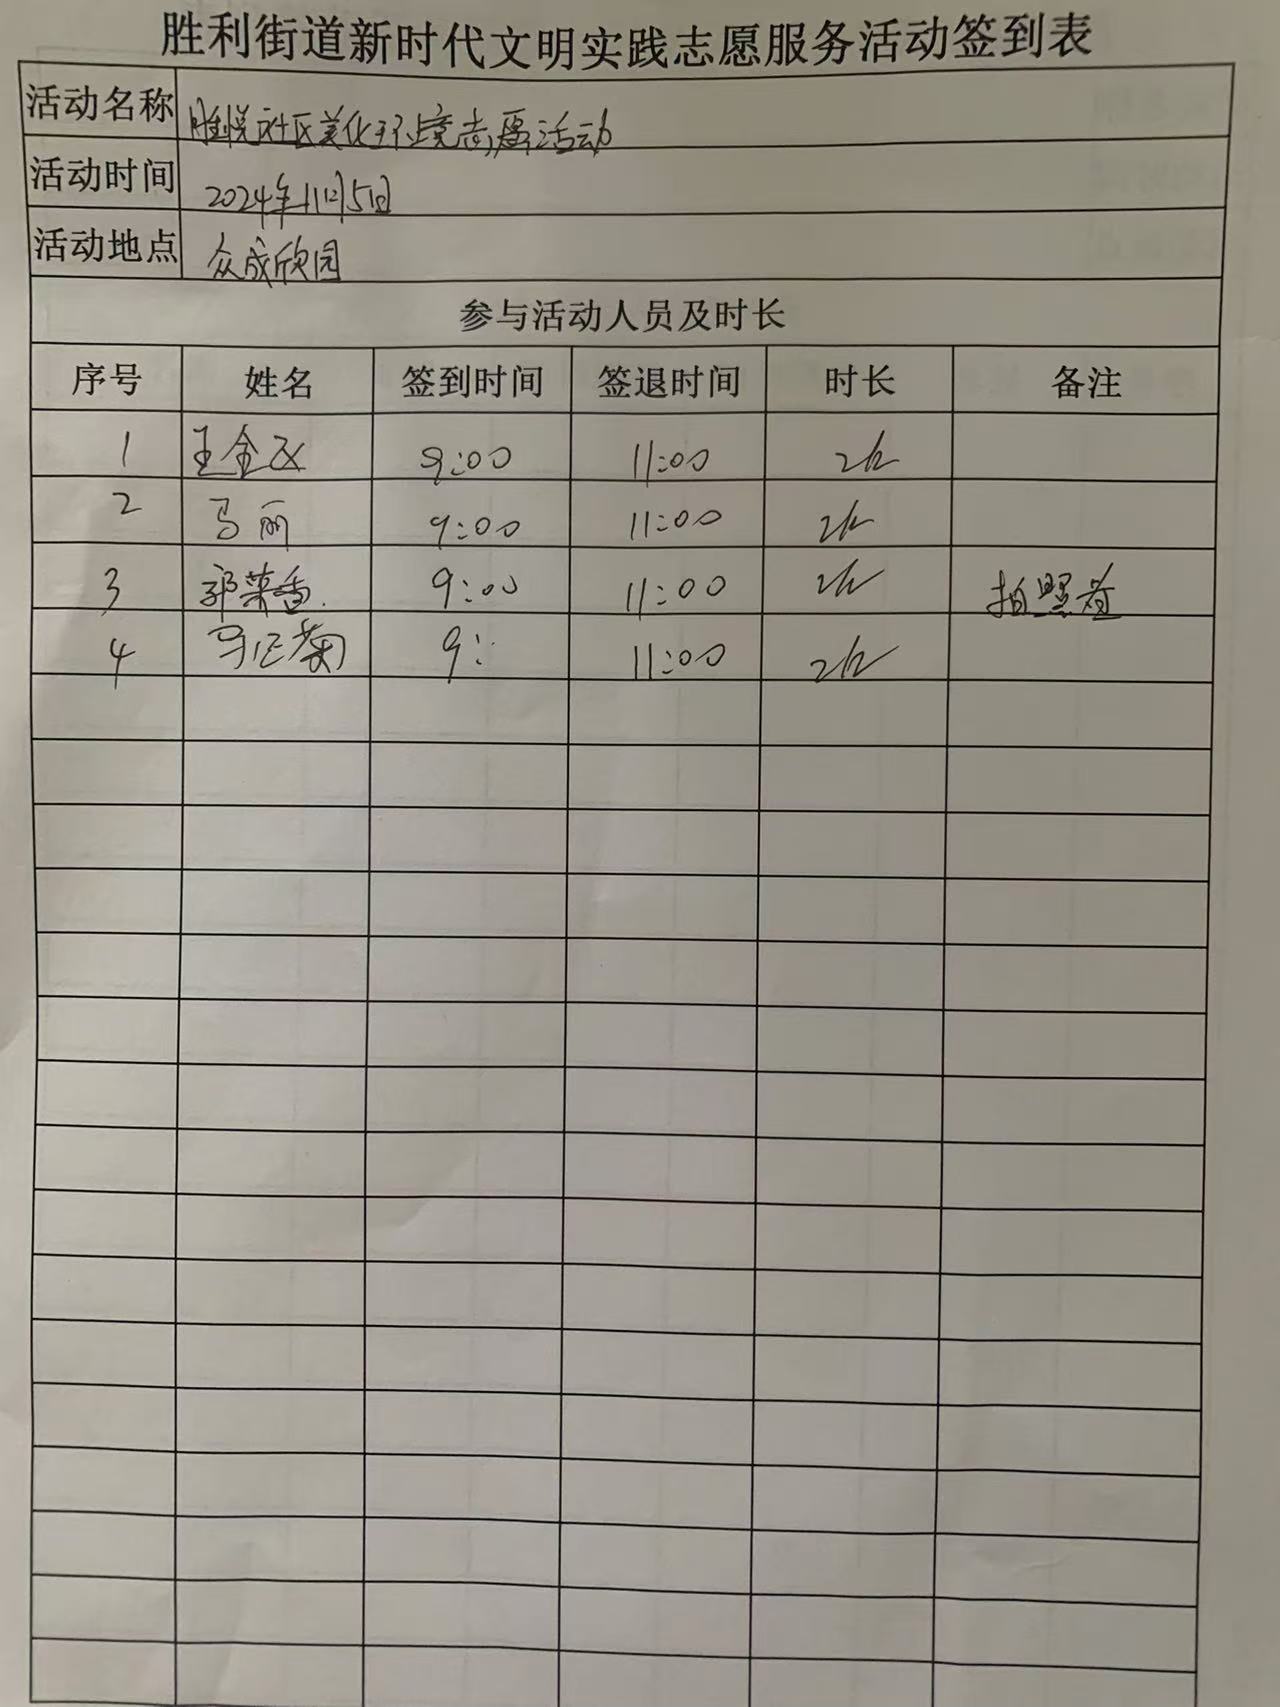 胜利街道新时代文明实践志愿服务活动签到表
活动名称 胜悦社区美化环境志愿活动
活动时间 2024年11月5日
活动地点 众成欣园
参与活动人员及时长
序号 姓名 签到时间 签退时间 时长 备注
1 王金 9:00 11:00 2h
2 马丽 9:00 11:00 2h
3 郭荣香 9:00 11:00 2h 拍照者
4 马 菊 9: 11:00 2h